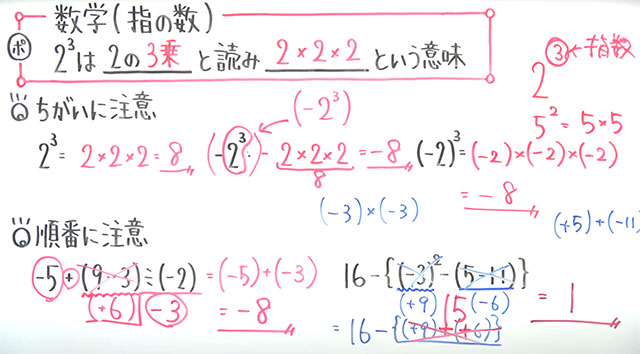 数学(指の数)
ポ 2³は 2の3乗 と読み 2×2×2 という意味
2³ ③←指数
5² = 5×5
ちがいに注意
(-2³)
2³= 2×2×2=8 (-2³)- 2×2×2 =-8 (-2)³=(-2)×(-2)×(-2)
8
=-8
(-3)×(-3)
(+5)+(-11)
順番に注意
-5+(9-3)÷(-2)=(-5)+(-3)
(+6) -3
=-8
16-{(-3)²-(5-11)}
(+9) 15 (-6)
=16-{(+9)+(+6)}
=1